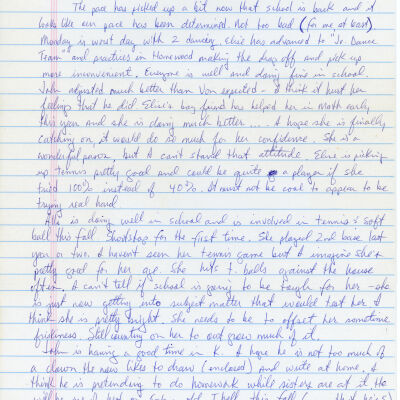 The pace has picked up a bit now that school is back and it
looks like our pace has been determined. Not too bad (for me at least).
Monday is worst day with 2 dancing. Elise has advanced to "Jr. Dance
Team and practices in Homewood making the drop off and pick up
more inconvenient. Everyone is well and doing fine in school.
John adjusted much better than Von expected - I think it hurt her
feelings that he did. Elise's boy friend has helped her in math early
this year and she is doing much better .... I hope she is finally
catching on, it would do so much for her confidence. She is a
wonderful person, but I can't stand that attitude. Elise is picking
up tennis pretty good and could be quite a player if she
tried 100% instead of 40%. It must not be cool to appear to be
trying real hard.
is doing well in school and is involved in tennis & soft
ball this fall. Shortstop for the first time. She played 2nd base last
year or two. I haven't seen her tennis game but I imagine she's
pretty good for her age. She hits t. balls against the house
often. I can't tell if school is going to be tough for her - she
is just now getting into subject matter that would test her. I
think she is pretty bright. She needs to be to offset her sometime
friskiness. Still counting on her to out grow much of it.
John is having a good time in K. I hope he is not too much of
a clown. He now likes to draw (enclosed) and write at home. I
think he is pretending to do homework while sisters are at it. He
will be